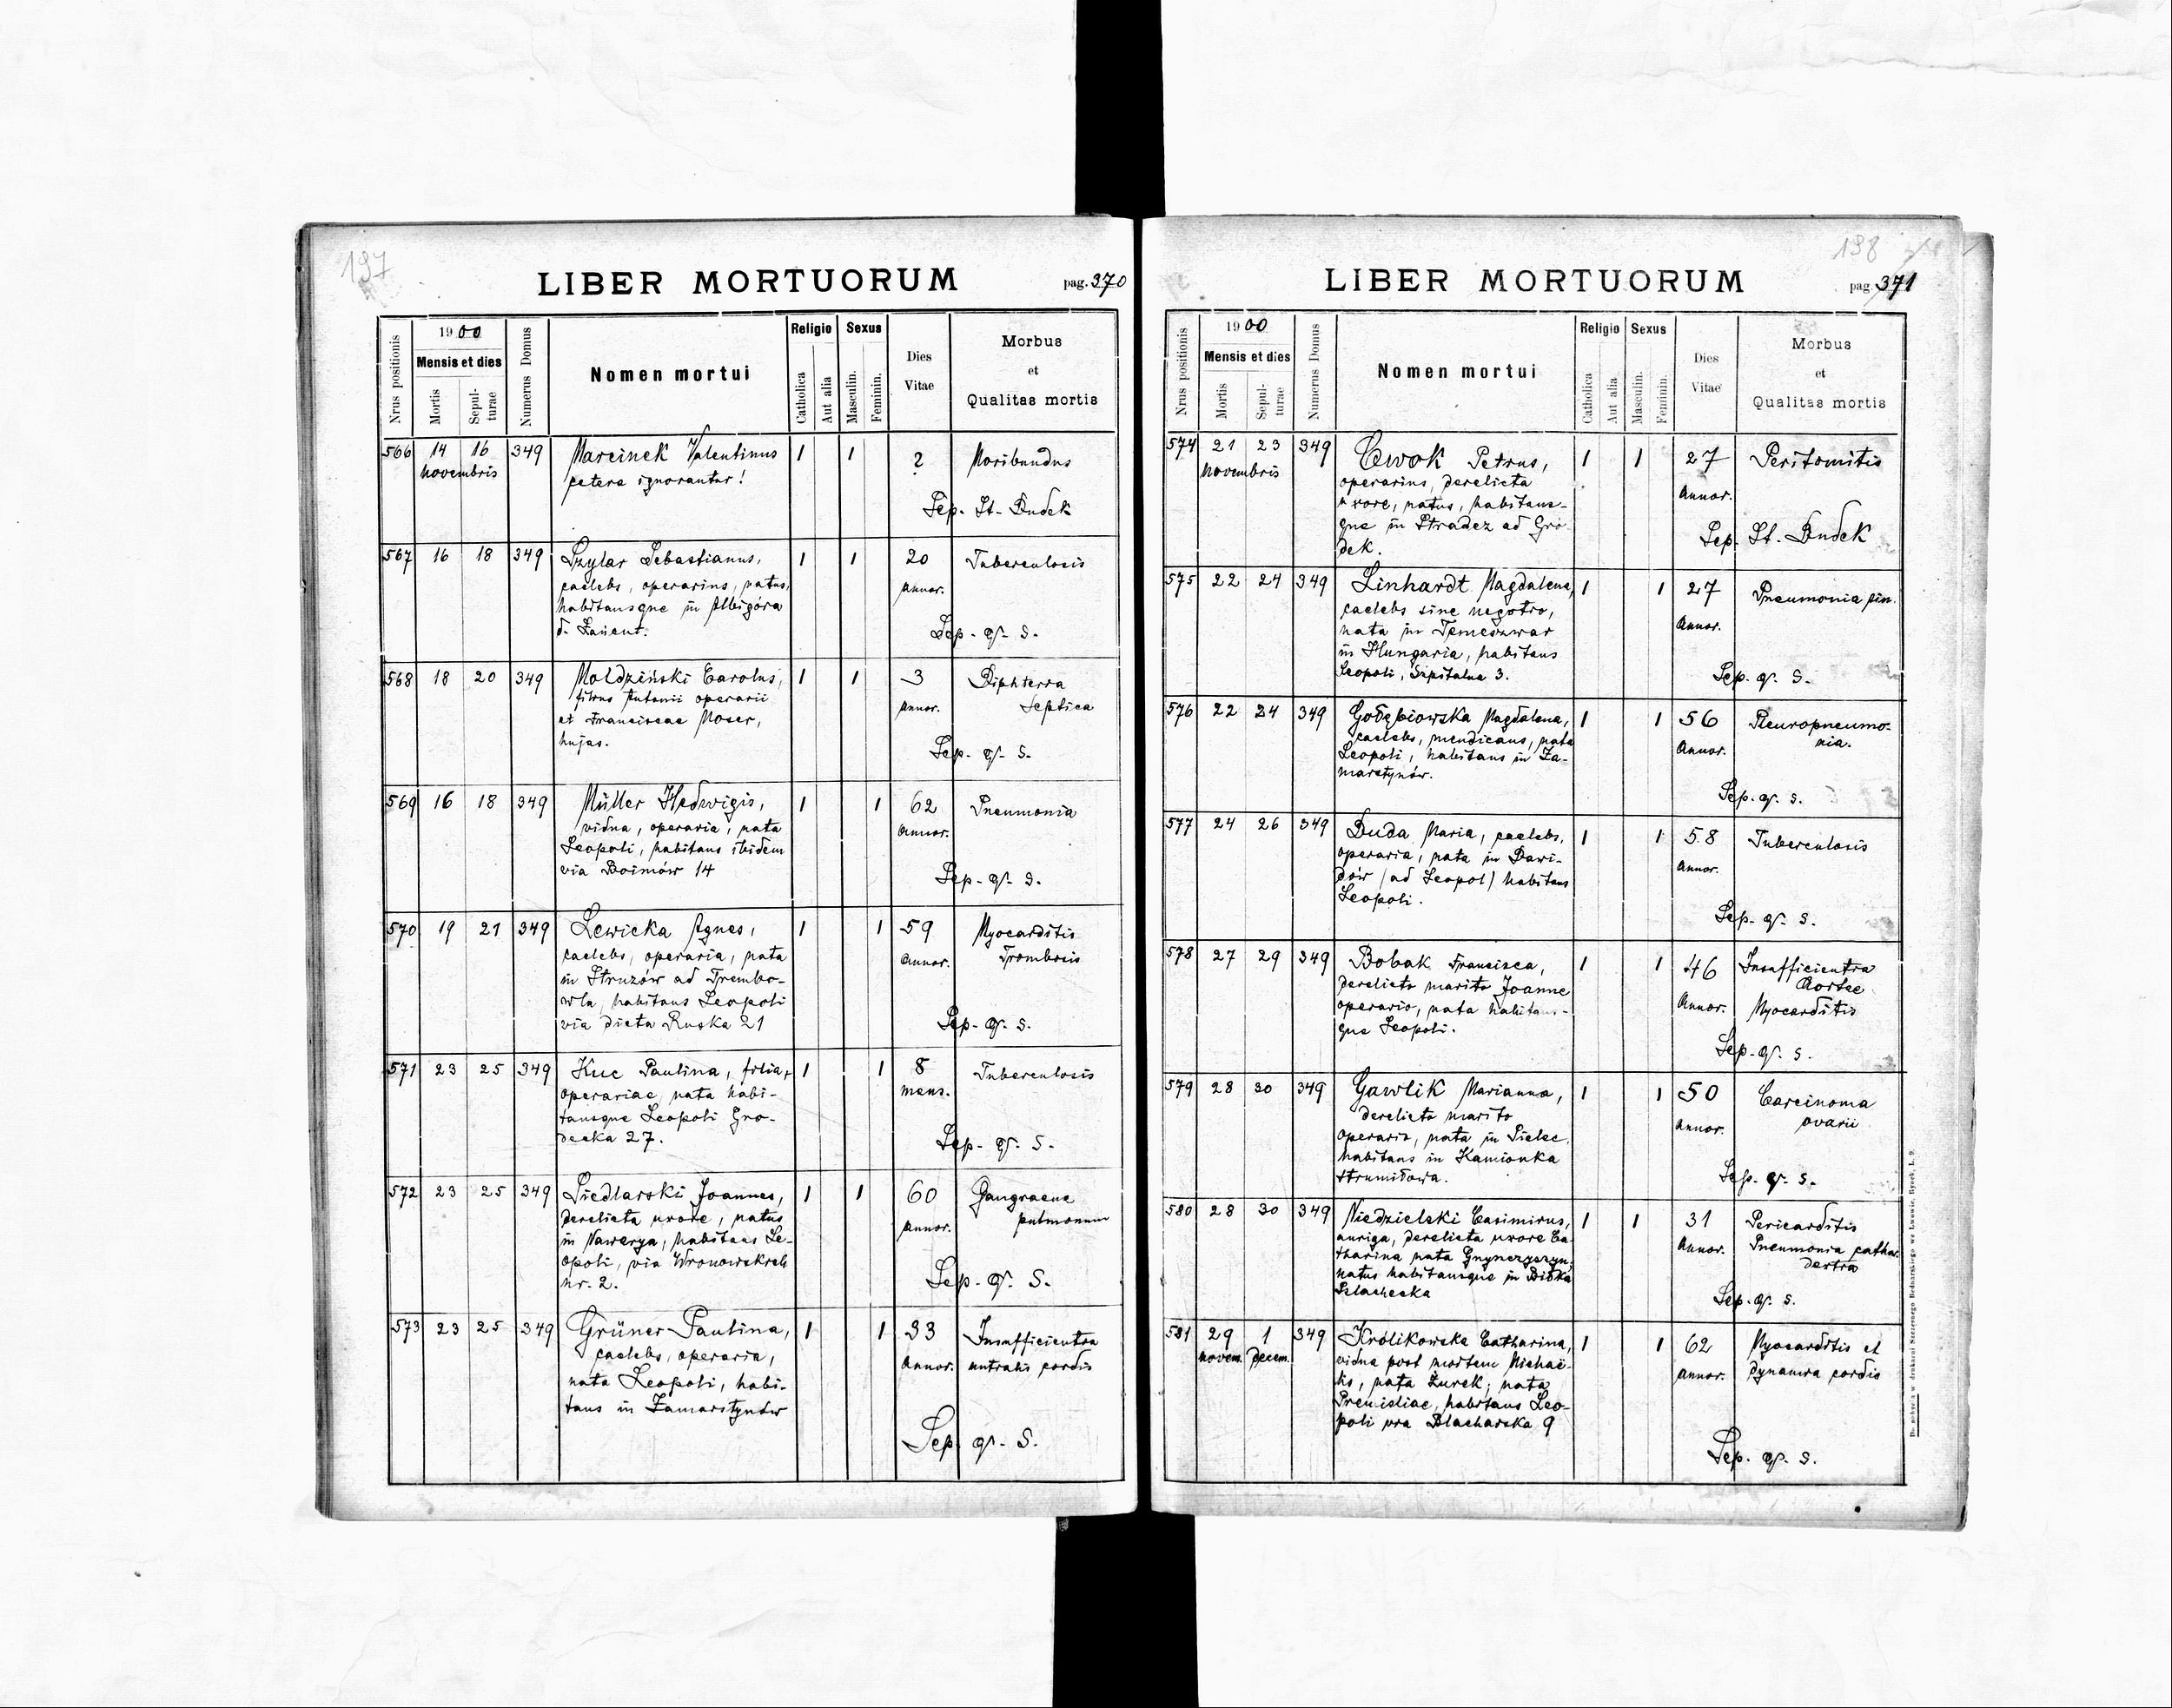 197
LIBER MORTUORUM
pag. 370
Nrus positionis
1900
Mensis et dies
Mortis
Sepul-
turae
Numerus Domus
Nomen mortui
Religio
Catholica
Aut alia
Sexus
Masculin.
Feminin.
Dies
Vitae
Morbus
et
Qualitas mortis
566 14 16 349 Marcinek Valentinus 1 1 ? Moribundus
novembris cetera ignorantur!
Sep. St. Dudek
567 16 18 349 Szylar Sebastianus, 1 1 20 Tuberculosis
caelebs, operarius, natus, annor.
habitansque in Albigóra
d. Łańcut. Sep. qr. S.
568 18 20 349 Moldziński Carolus, 1 1 3 Diphterra
filius Antonii operarii annor. septica
et Franciscae Moser,
hujas. Sep. qr. S.
569 16 18 349 Müller Hedwigis, 1 1 62 Pneumonia
vidua, operaria, nata annor.
Leopoli, habitans ibidem
via Boimów 14 Sep. qr. S.
570 19 21 349 Lewicka Agnes, 1 1 59 Myocarditis
caelebs, operaria, nata annor. Trombosis
in Struzów ad Trembo-
wla, habitans Leopoli
via dicta Ruska 21 Sep. qr. S.
571 23 25 349 Kuc Paulina, filia, 1 1 8 Tuberculosis
operariae, nata habi- mens.
tansque Leopoli Gro-
decka 27. Sep. qr. S.
572 23 25 349 Siedlarski Joannes, 1 1 60 Gangraena
derelicta uxore, natus annor. pulmonum
in Nawarya, habitans Le-
opoli, via Wronowskich
nr. 2. Sep. qr. S.
573 23 25 349 Grüner Paulina, 1 1 33 Insufficientia
caelebs, operaria, annor. mitralis cordis
nata Leopoli, habi-
tans in Zamarstynów
Sep. qr. S.
198
LIBER MORTUORUM
pag. 371
Nrus positionis
1900
Mensis et dies
Mortis
Sepul-
turae
Numerus Domus
Nomen mortui
Religio
Catholica
Aut alia
Sexus
Masculin.
Feminin.
Dies
Vitae
Morbus
et
Qualitas mortis
574 21 23 349 Cwok Petrus, 1 1 27 Peritonitis
novembris operarius, derelicta annor.
uxore, natus, habitans-
que in Stradcz ad Gró-
dek. Sep. St. Dudek
575 22 24 349 Linhardt Magdalena, 1 1 27 Pneumonia sin.
caelebs sine negotio, annor.
nata in Temeszwar
in Hungaria, habitans
Leopoli, Szpitalna 3. Sep. qr. S.
576 22 24 349 Gołębiowska Magdalena, 1 1 56 Pleuropneumo-
caelebs, mendicans, nata annor. nia.
Leopoli, habitans in Za-
marstynów. Sep. qr. S.
577 24 26 349 Duda Maria, caelebs, 1 1 58 Tuberculosis
operaria, nata in Dawi- annor.
dów (ad Leopol) habitans
Leopoli. Sep. qr. S.
578 27 29 349 Bobak Francisca, 1 1 46 Insufficientia
derelicto marito Joanne annor. Aortae
operario, nata habitans- Myocarditis
que Leopoli. Sep. qr. S.
579 28 30 349 Gawlik Marianna, 1 1 50 Carcinoma
derelicto marito annor. ovarii
operario, nata in Pielec,
habitans in Kamionka
strumiłowa. Sep. qr. S.
580 28 30 349 Niedzielski Casimirus, 1 1 31 Pericarditis
auriga, derelicta uxore Ca- annor. Pneumonia cathar.
tharina nata dextra
natus habitansque in Biłka
Szlachecka Sep. qr. S.
581 29 1 349 Królikowska Catharina, 1 1 62 Myocarditis et
novem. decem. vidua post mortem Michaë- annor. dynamia cordis
lis, nata Żurek, nata
Premisliae, habitans Leo-
poli via Blacharska 9
Sep. qr. S.